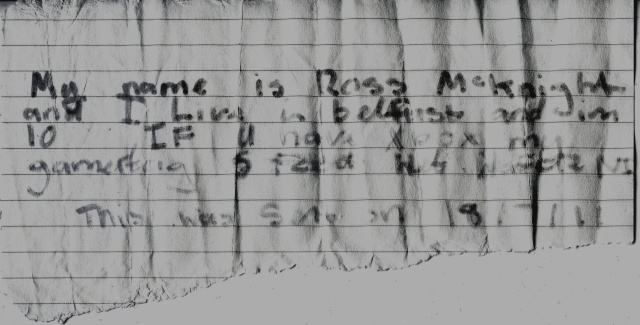 My name is Ross Mcknight
and I Live in belfast and im
10 IF U have xbox my
gamertag
This was Sent on 18/7/11